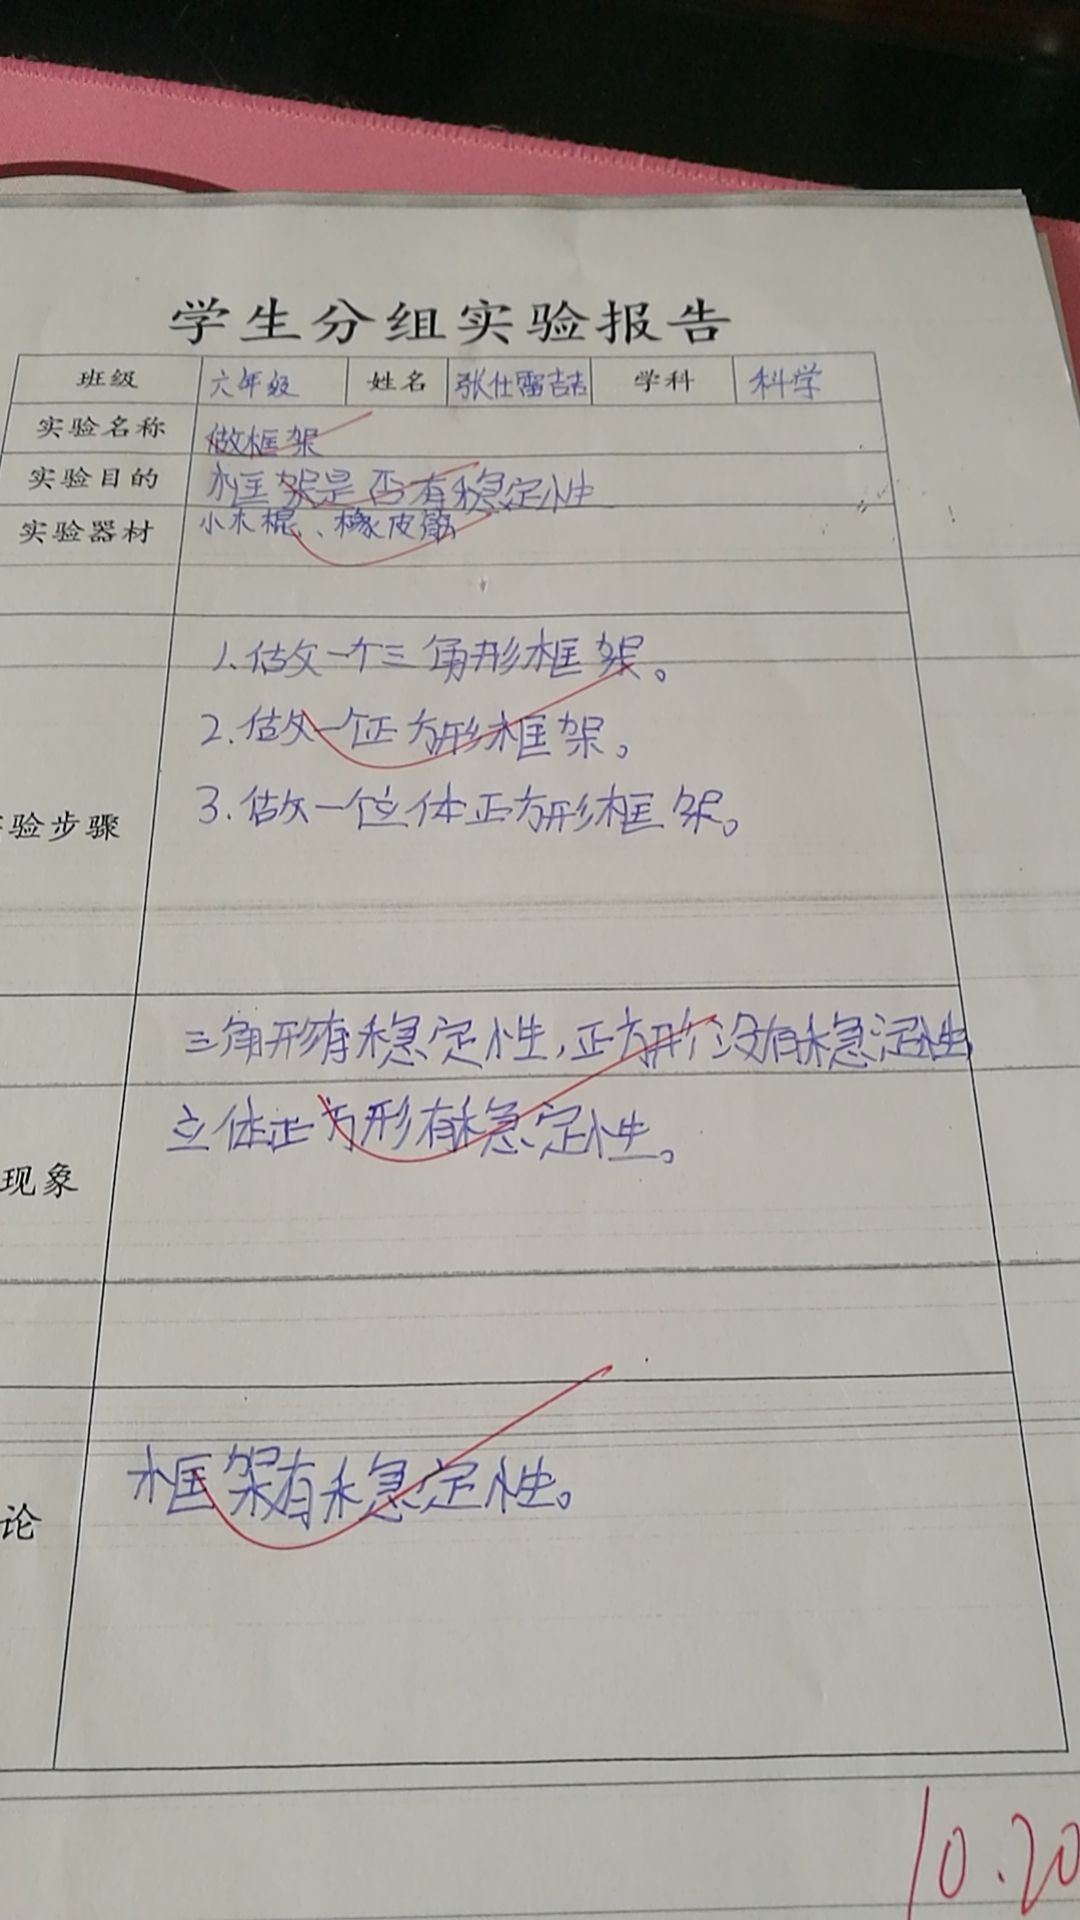 学生分组实验报告
班级 六年级 姓名 张仕雷喆 学科 科学
实验名称 做框架
实验目的 框架是否有稳定性
实验器材 小木棍、橡皮筋
1.做一个三角形框架。
2.做一个正方形框架。
验步骤
3.做一个立体正方形框架。
三角形有稳定性,正方形没有稳定性
立体正方形有稳定性。
现象
框架有稳定性。
论
10.20